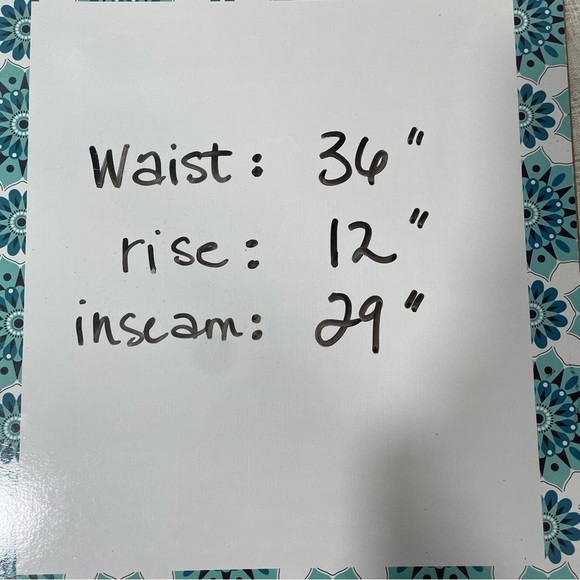 Waist: 36"
rise: 12"
inseam: 29"